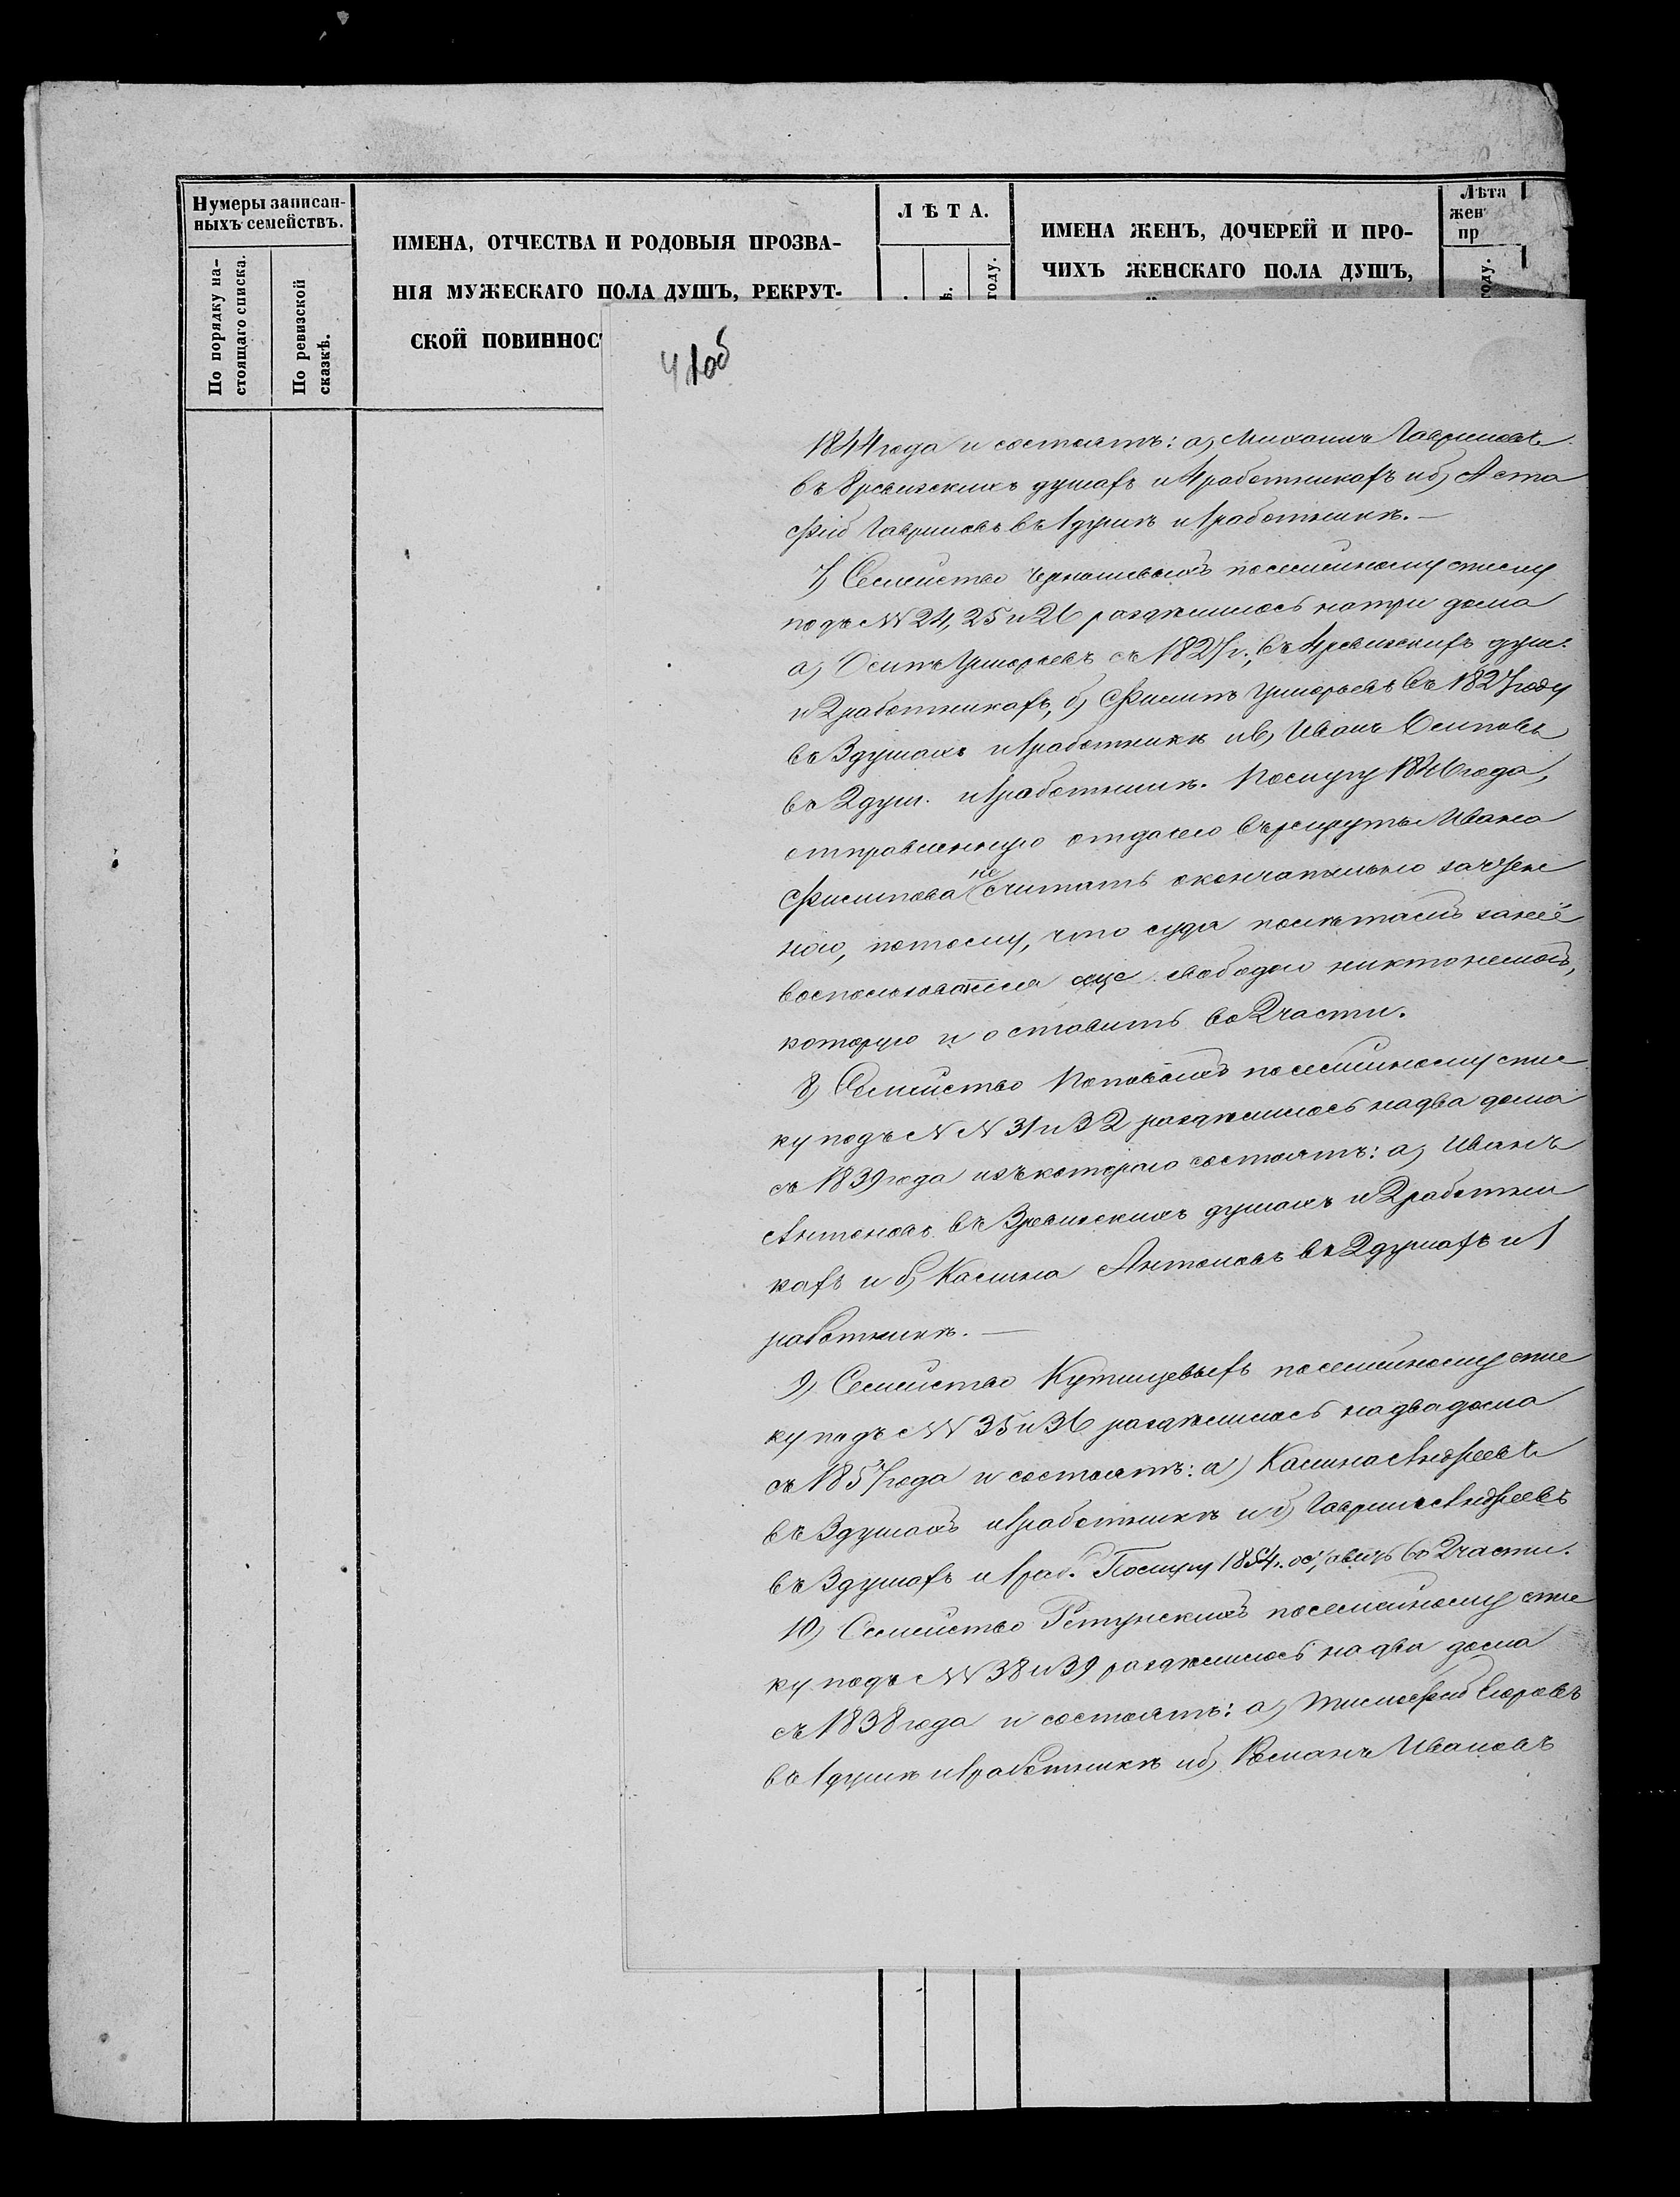 Нумеры записан-
ныхъ семействъ.
По порядку на-
стоящаго списка.
По ревизской
сказкѣ.
ИМЕНА, ОТЧЕСТВА И РОДОВЫЯ ПРОЗВА-
НІЯ МУЖЕСКАГО ПОЛА ДУШЪ, РЕКРУТ-
СКОЙ ПОВИННОС
ЛѢТА.
году.
ИМЕНА ЖЕНЪ, ДОЧЕРЕЙ И ПРО-
ЧИХЪ ЖЕНСКАГО ПОЛА ДУШЪ,
Лѣта
жен
пр
году.
41об
1844 года и состоятъ: а) Михаилъ Гавриловъ
въ 8 ревизскихъ душахъ и 4 работникахъ и б) Аста
фій Гавриловъ въ 1 душѣ и 1 работникѣ. —
7) Семейство посемейному списку
подъ №№ 24, 25 и 26 раздѣлилось на три дома
а) Осипъ Григорьевъ съ 1827 г., въ 4 ревизскихъ душ.
и 2 работникахъ, б) Филипъ Григорьевъ въ 1827 году
въ 3 душахъ и 1 работникѣ и в) Иванъ Осиповъ
въ 2 душ. и 1 работникѣ. Послугу 1846 года,
отправленную отдачею въ рекруты Ивана
Филипова не считать окончательно зачтен
ною, потому, что судя по лѣтамъ за неё
воспользоватся еще свободою никто не могъ,
которую и оставить во 2 части.
8) Семейство Поповыхъ посемейному спис
ку подъ №№ 31 и 32 раздѣлилось на два дома
съ 1839 года изъ котораго состоятъ: а) Иванъ
Антоновъ въ 3 ревизскихъ душахъ и 2 работни
кахъ и б) Калина Антоновъ въ 2 душахъ и 1
работникѣ. —
9) Семейство Кутищевыхъ посемейному спис
ку подъ №№ 35 и 36 раздѣлилось на два дома
съ 1857 года и состоятъ: а) Калина Андреевъ
въ 3 душахъ и 1 работникѣ и б) Гаврила Андреевъ
въ 3 душахъ и 1 раб. Послугу 1854 г. оставить во 2 части.
10) Семейство Ретунскихъ посемейному спис
ку подъ №№ 38 и 39 раздѣлилось на два дома
съ 1838 года и состоятъ: а) Тимофей Егоровъ
въ 1 душѣ и 1 работникѣ и б) Романъ Ивановъ